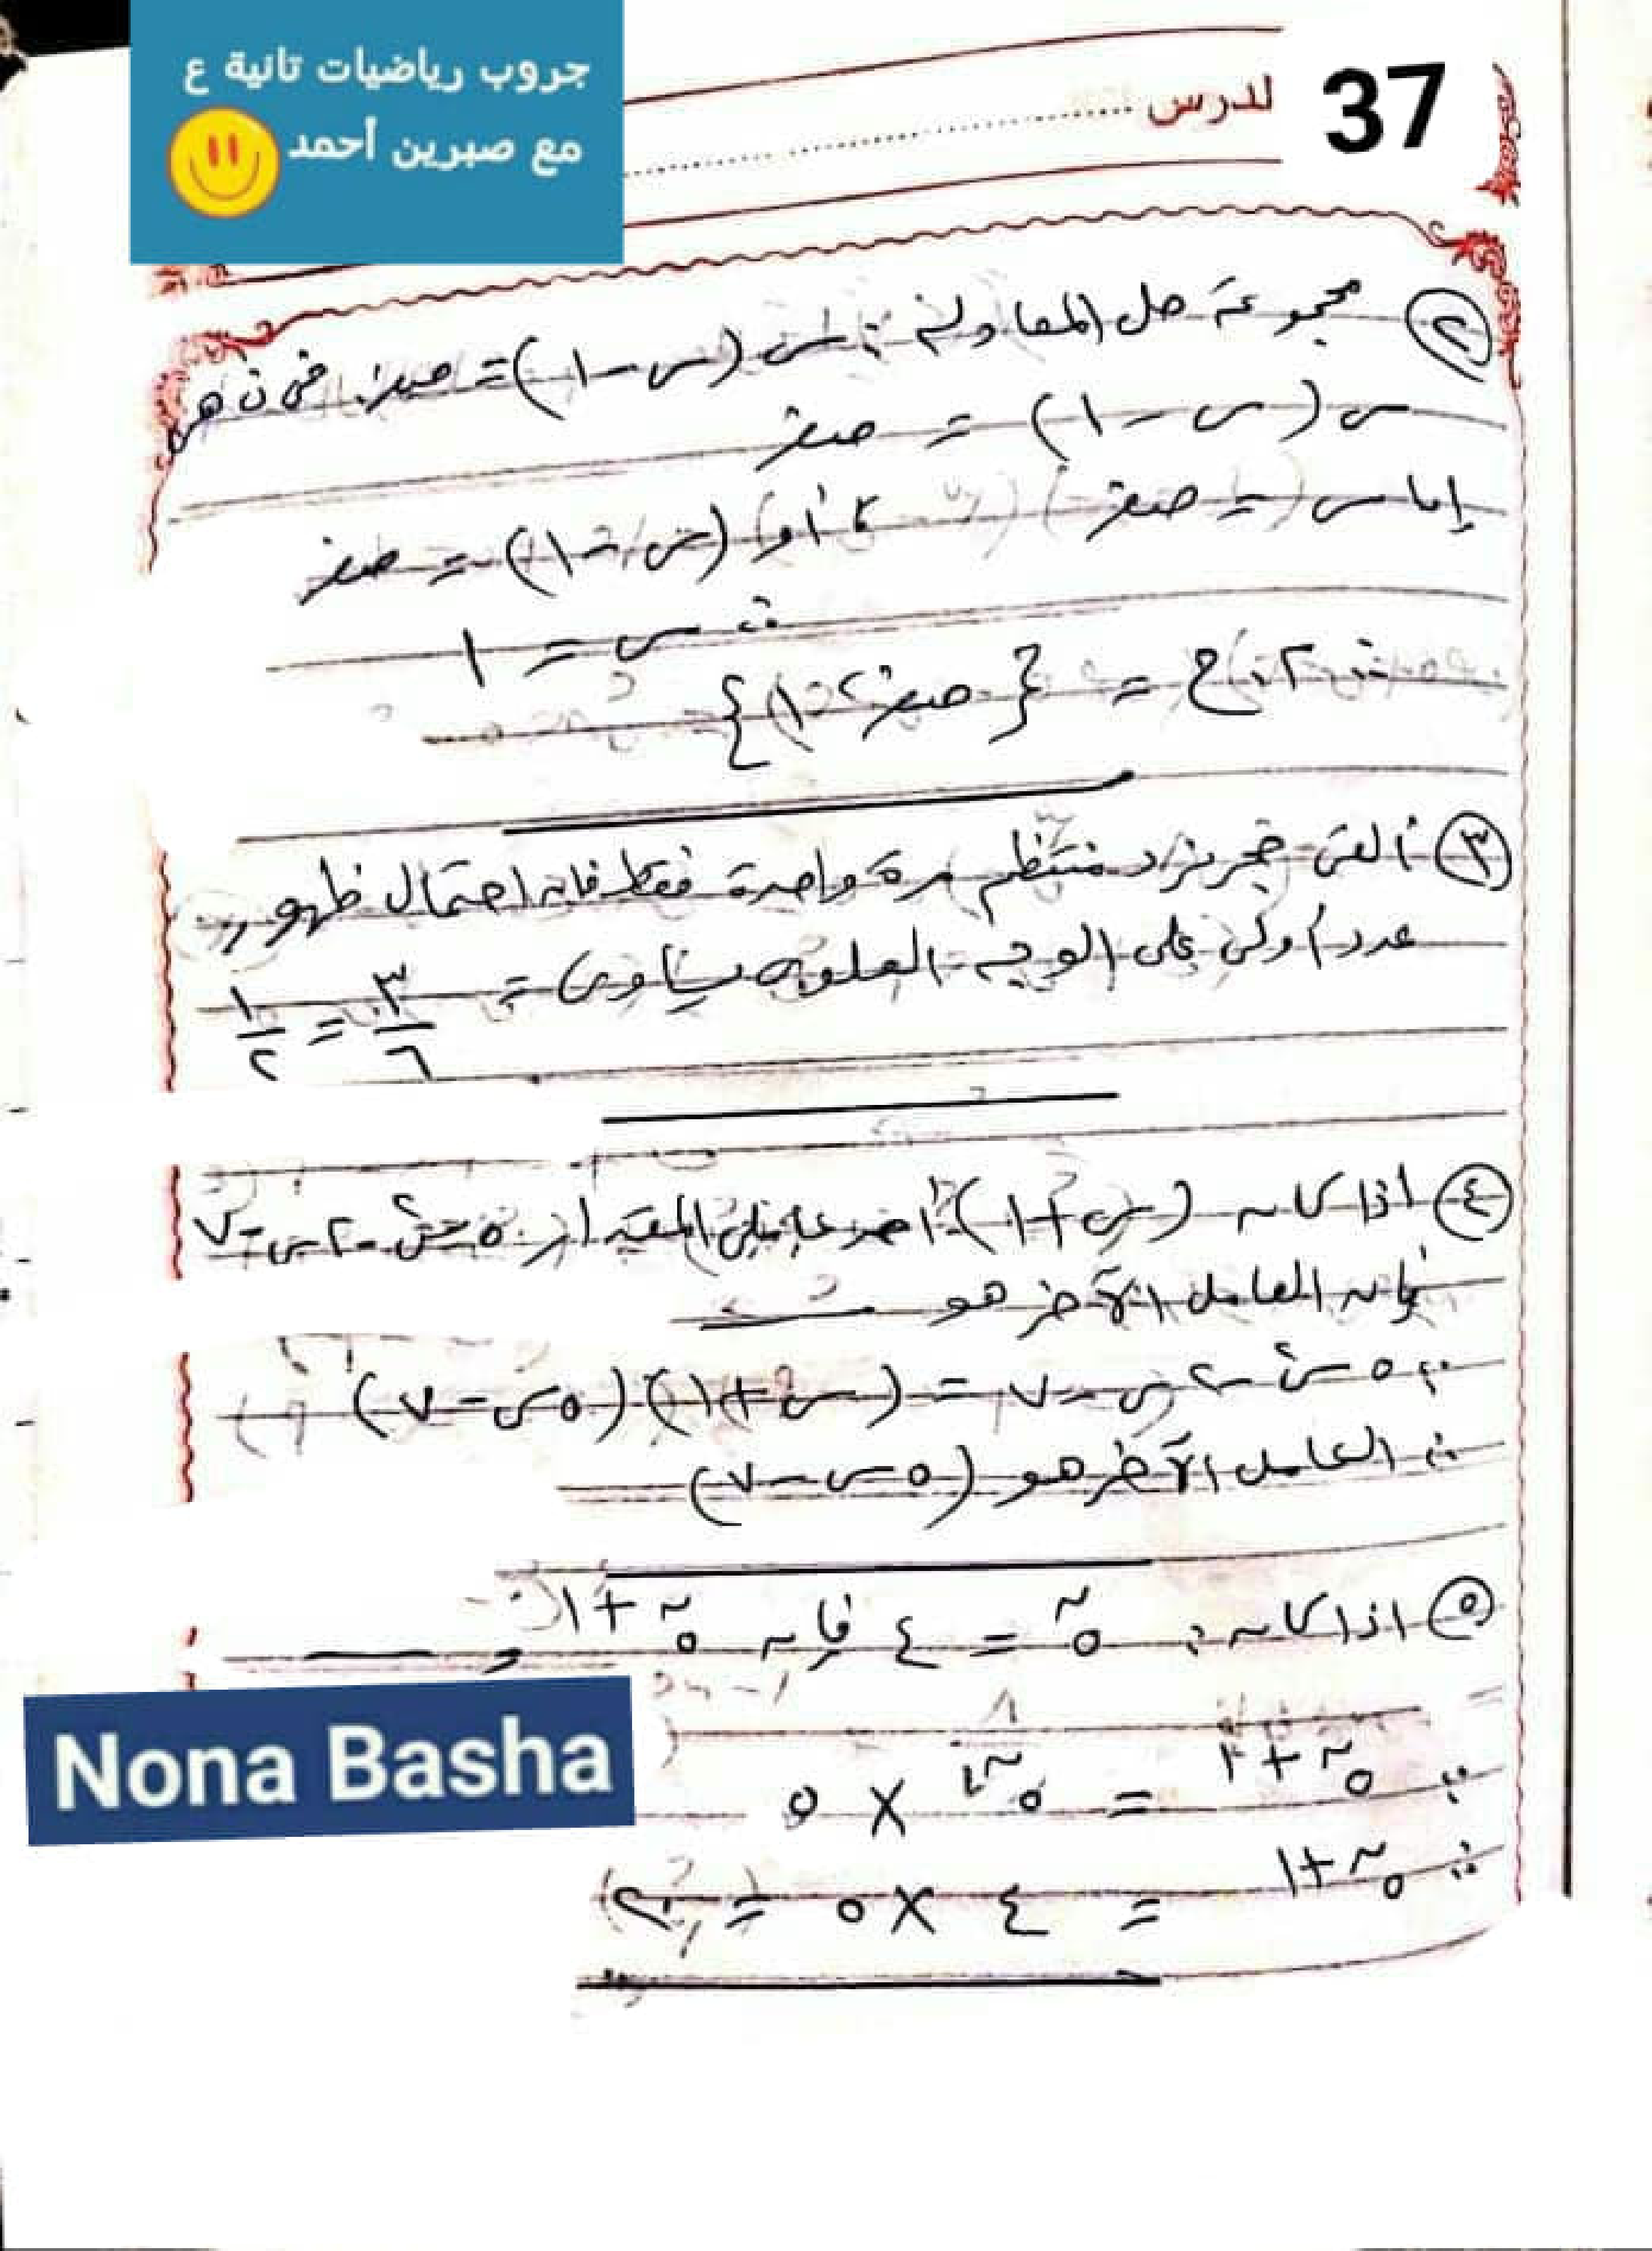 جروب رياضيات تانية ع
مع صبرين أحمد
لدرس
37
٢ مجموعة حل المعادلة : س (س - ١) = صفر فى ن هى
س (س - ١) = صفر
إما س = صفر ، أو (س - ١) = صفر
∴ س = ١
∴ م . ح = { صفر ، ١ }
٣ ألقى حجر نرد منتظم مرة واحدة فقط فإن احتمال ظهور
عدد أولى على الوجه العلوى يساوى = ٣/٦ = ١/٢
٤ اذا كان (س + ١) أحد عاملى المقدار ٥س² - ٢س - ٧
فإن العامل الآخر هو
∵ ٥س² - ٢س - ٧ = (س + ١) (٥س - ٧)
∴ العامل الآخر هو (٥س - ٧)
٥ اذا كان : ٥^س = ٤ فإن ٥^س+١ =
Nona Basha
∵ ٥^س+١ = ٥^س × ٥
∴ ٥^س+١ = ٤ × ٥ = ٢٠